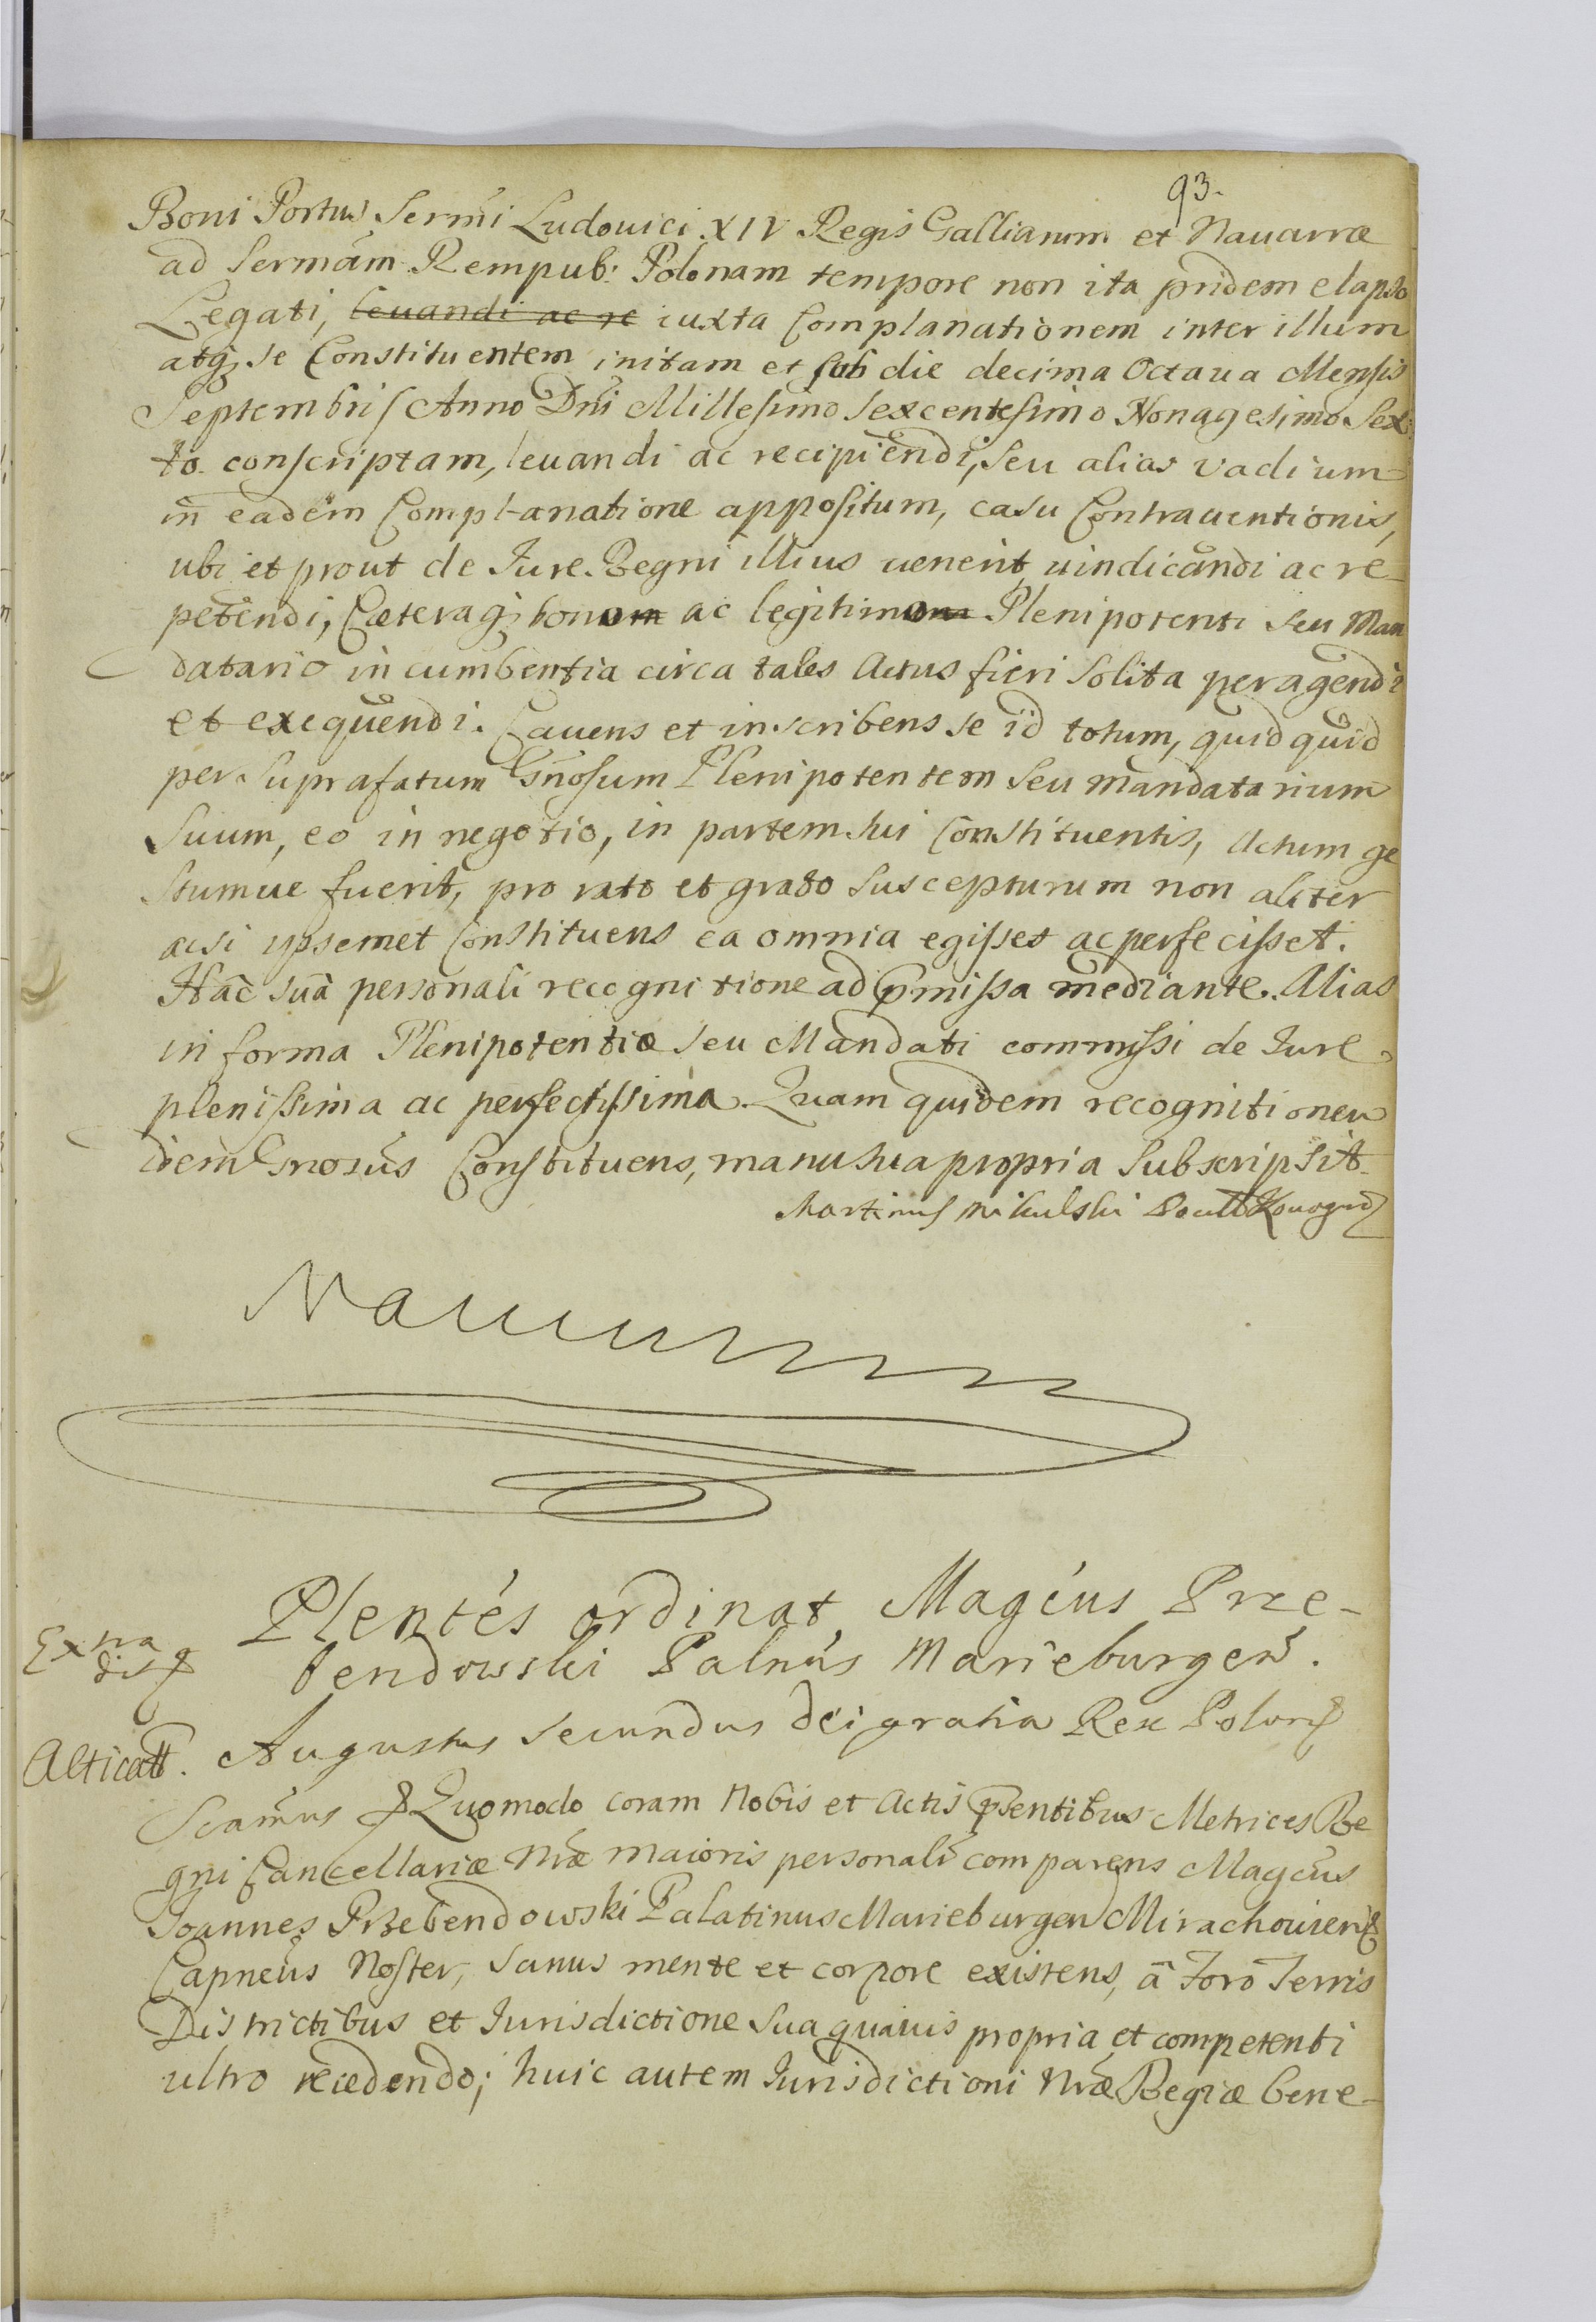 93.
Boni Portus Sermi Ludovici XIV Regis Galliarum et Nauarræ
ad Sermam Rempub: Polonam tempore non ita pridem elapso
Legati, leuandi ac re iuxta Complanationem inter illum
atq; se Constituentem initam et sub die decima Octaua Mensis
Septembris Anno Dni Millesimo Sexcentesimo Nonagesimo Sex
to conscriptam, leuandi ac recipiendi, seu alias vadium
in eadem Complanatione appositum, casu Contrauentionis,
ubi et prout de Iure Regni illius uenerit, uindicandi ac re-
petendi, Cæteraq; bonom ac legitimom Plenipotenti seu Man
datario incumbentia circa tales Actus fieri solita peragendi
et exequendi. Cauens et inscribens se id totum, quidquid
per suprafatum Gnosum Plenipotentem seu mandatarium
Suum, eo in negotio, in partem sui Constituentis, Actum ge
stumue fuerit, pro rato et grato suscepturum non aliter
acsi ipsemet Constituens ea omnia egisset ac perfecisset.
Hac sua personali recognitione ad pmissa mediante. Alias
in forma Plenipotentiæ seu Mandati commissi de Iure
plenissima ac perfectissima. Quam quidem recognitionem
idem Gnosus Constituens, manu sua propria subscripsit.
Martinus Mikulski
Plentes ordinat Magcus Prze-
bendowski Palnus Marieburgen.
Extra
dis
Alticatt.
Augustus Secundus dei gratia Rex Polon
Scamus Quomodo coram Nobis et Actis psentibus Metrices Re
gni Cancellariæ Nræ maioris personalr comparens Magcus
Joannes Przebendowski Palatinus Marieburgen Mirachouien
Capneus Noster, sanus mente et corpore existens, a Foro Terris
Districtibus et Iurisdictione sua quauis propria et competenti
ultro recedendo; huic autem Iurisdictioni Nræ Regiæ bene-